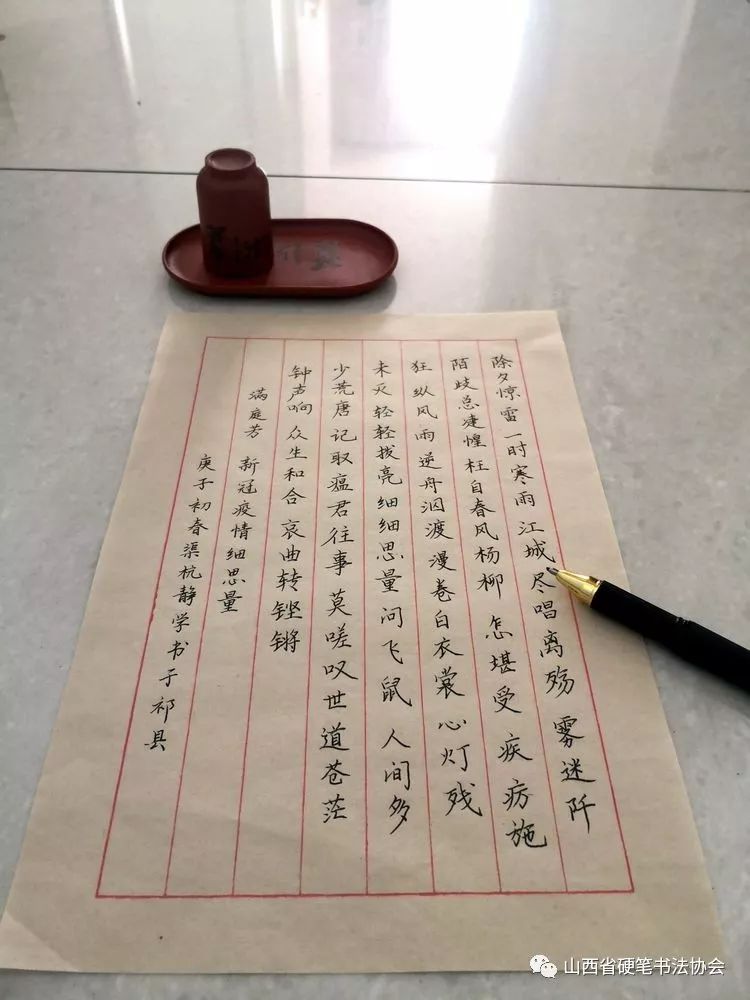 除夕惊雷一时寒雨江城尽唱离殇雾迷阡
陌歧总凄惶枉自春风杨柳怎堪受疾疠施
狂纵风雨逆舟泅渡漫卷白衣裳心灯残
未灭轻轻拨亮细细思量问飞鼠人间多
少荒唐记取瘟君往事莫嗟叹世道苍茫
钟声响众生和合哀曲转铿锵
满庭芳新冠疫情细思量
庚子初春渠杭静学书于祁县
山西省硬笔书法协会